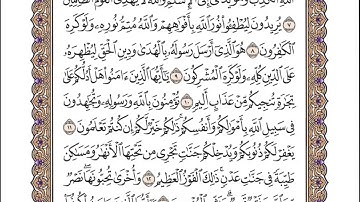 الله الكذب وهو يدعى إلى الإسلام والله لا يهدي القوم الظالمين
٧ يُرِيدُونَ لِيُطْفِـُٔوا۟ نُورَ ٱللَّهِ بِأَفْوَٰهِهِمْ وَٱللَّهُ مُتِمُّ نُورِهِۦ وَلَوْ كَرِهَ
ٱلْكَـٰفِرُونَ ٨ هُوَ ٱلَّذِىٓ أَرْسَلَ رَسُولَهُۥ بِٱلْهُدَىٰ وَدِينِ ٱلْحَقِّ لِيُظْهِرَهُۥ
عَلَى ٱلدِّينِ كُلِّهِۦ وَلَوْ كَرِهَ ٱلْمُشْرِكُونَ ٩ يَـٰٓأَيُّهَا ٱلَّذِينَ ءَامَنُوا۟ هَلْ أَدُلُّكُمْ عَلَىٰ
تِجَـٰرَةٍ تُنجِيكُم مِّنْ عَذَابٍ أَلِيمٍ ١٠ تُؤْمِنُونَ بِٱللَّهِ وَرَسُولِهِۦ وَتُجَـٰهِدُونَ
فِى سَبِيلِ ٱللَّهِ بِأَمْوَٰلِكُمْ وَأَنفُسِكُمْ ذَٰلِكُمْ خَيْرٌ لَّكُمْ إِن كُنتُمْ تَعْلَمُونَ ١١
يَغْفِرْ لَكُمْ ذُنُوبَكُمْ وَيُدْخِلْكُمْ جَنَّـٰتٍ تَجْرِى مِن تَحْتِهَا ٱلْأَنْهَـٰرُ وَمَسَـٰكِنَ
طَيِّبَةً فِى جَنَّـٰتِ عَدْنٍ ذَٰلِكَ ٱلْفَوْزُ ٱلْعَظِيمُ ١٢ وَأُخْرَىٰ تُحِبُّونَهَا نَصْرٌ